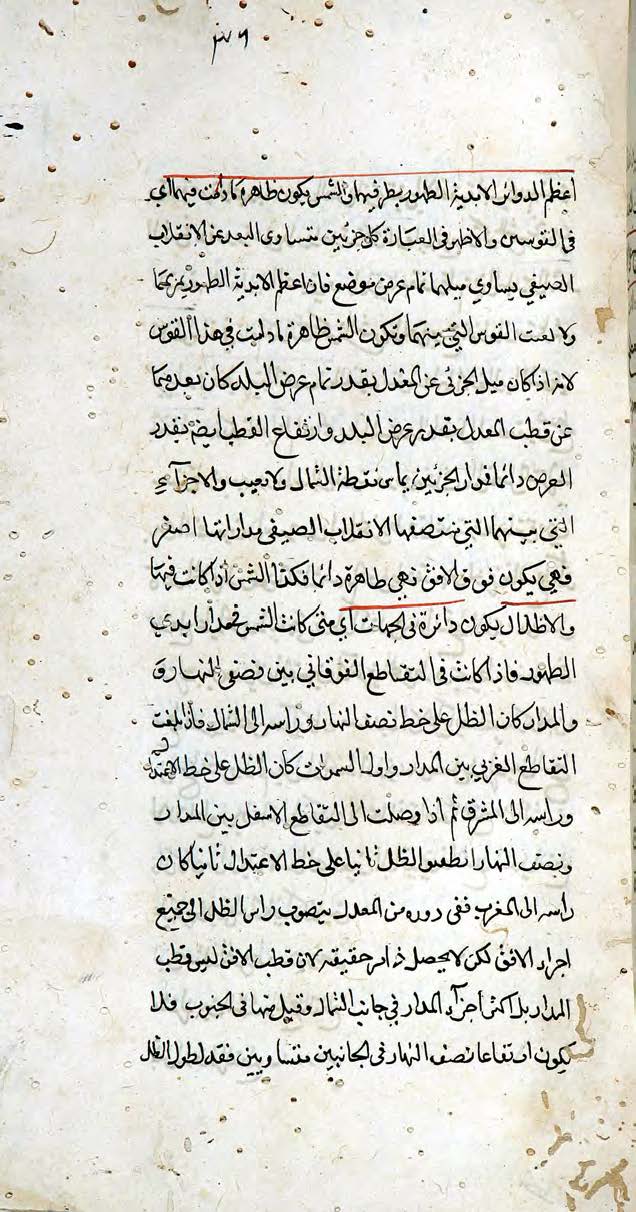 اعظم الدوائر الابدية الظهور بطرفيها والشمس يكون ظاهرة ما دامت فيها اي
في القوسين والاظهر في العبارة كل جزئين متساوى البعد عن الانقلاب
الصيفي يساوي ميلهما تمام عرض موضع فان اعظم الابدية الظهور يمر بهما
القوس التي بينهما ويكون الشمس ظاهرة ما دامت في هذا القوس
لانه اذا كان ميل الجزئى عن المعدل بقدر تمام عرض البلد كان بعدهما
عن قطب المعدل بقدر عرض البلد وارتفاع القطب ايضه بقدر
العرض دائما فمدار الجزئين يماس نقطة الشمال ولا تغيب والاجزآء
التي بينهما التي منتصفها الانقلاب الصيفي مداراتها اصغر
فهي يكون فوق الافق فهي ظاهرة دائما فكذا الشمس اذا كانت فيها
والاظلال يكون دائرة في الجهات اي متى كانت الشمس في مدار ابدي
الظهور فاذا كانت في التقاطع الفوقاني بين نصفي النهار
والمدار كان الظل على خط نصف النهار وراسه الى الشمال فاذا بلغت
التقاطع الغربي بين المدار واول السموات كان الظل على خط الاعتدال
وراسه الى المشرق ثم اذا وصلت الى التقاطع الاسفل بين المدار
ونصف النهار الظل ثانيا على خط الاعتدال ثانيا كان
راسه الى المغرب ففي دوره من المعدل يتصوب راس الظل الى جميع
اجزاء الافق لكن لا يحصل حقيقه لان قطب الافق ليس قطب
المدار بل اكثر أجزآء المدار في جانب الشمال وقليل منها في الجنوب فلا
يكون ارتفاعا نصف النهار في الجانبين متساويين فقد لطول الظل